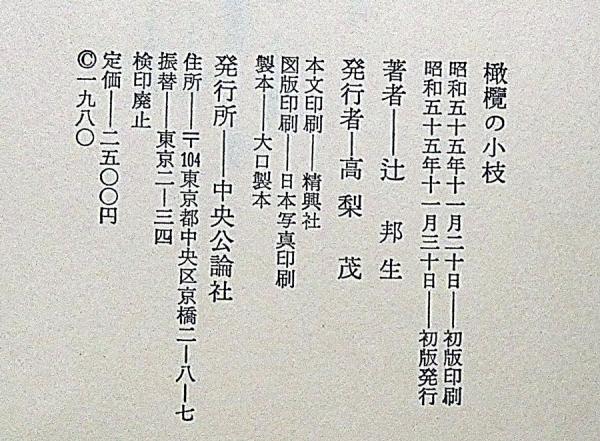 橄欖の小枝
昭和五十五年十一月二十日——初版印刷
昭和五十五年十一月三十日——初版発行
著者——辻 邦生
発行者—高梨 茂
本文印刷——精興社
図版印刷——日本写真印刷
製本——大口製本
発行所——中央公論社
住所——〒104東京都中央区京橋二—八—七
振替——東京二—三四
検印廃止
定価——二五〇〇円
©一九八〇